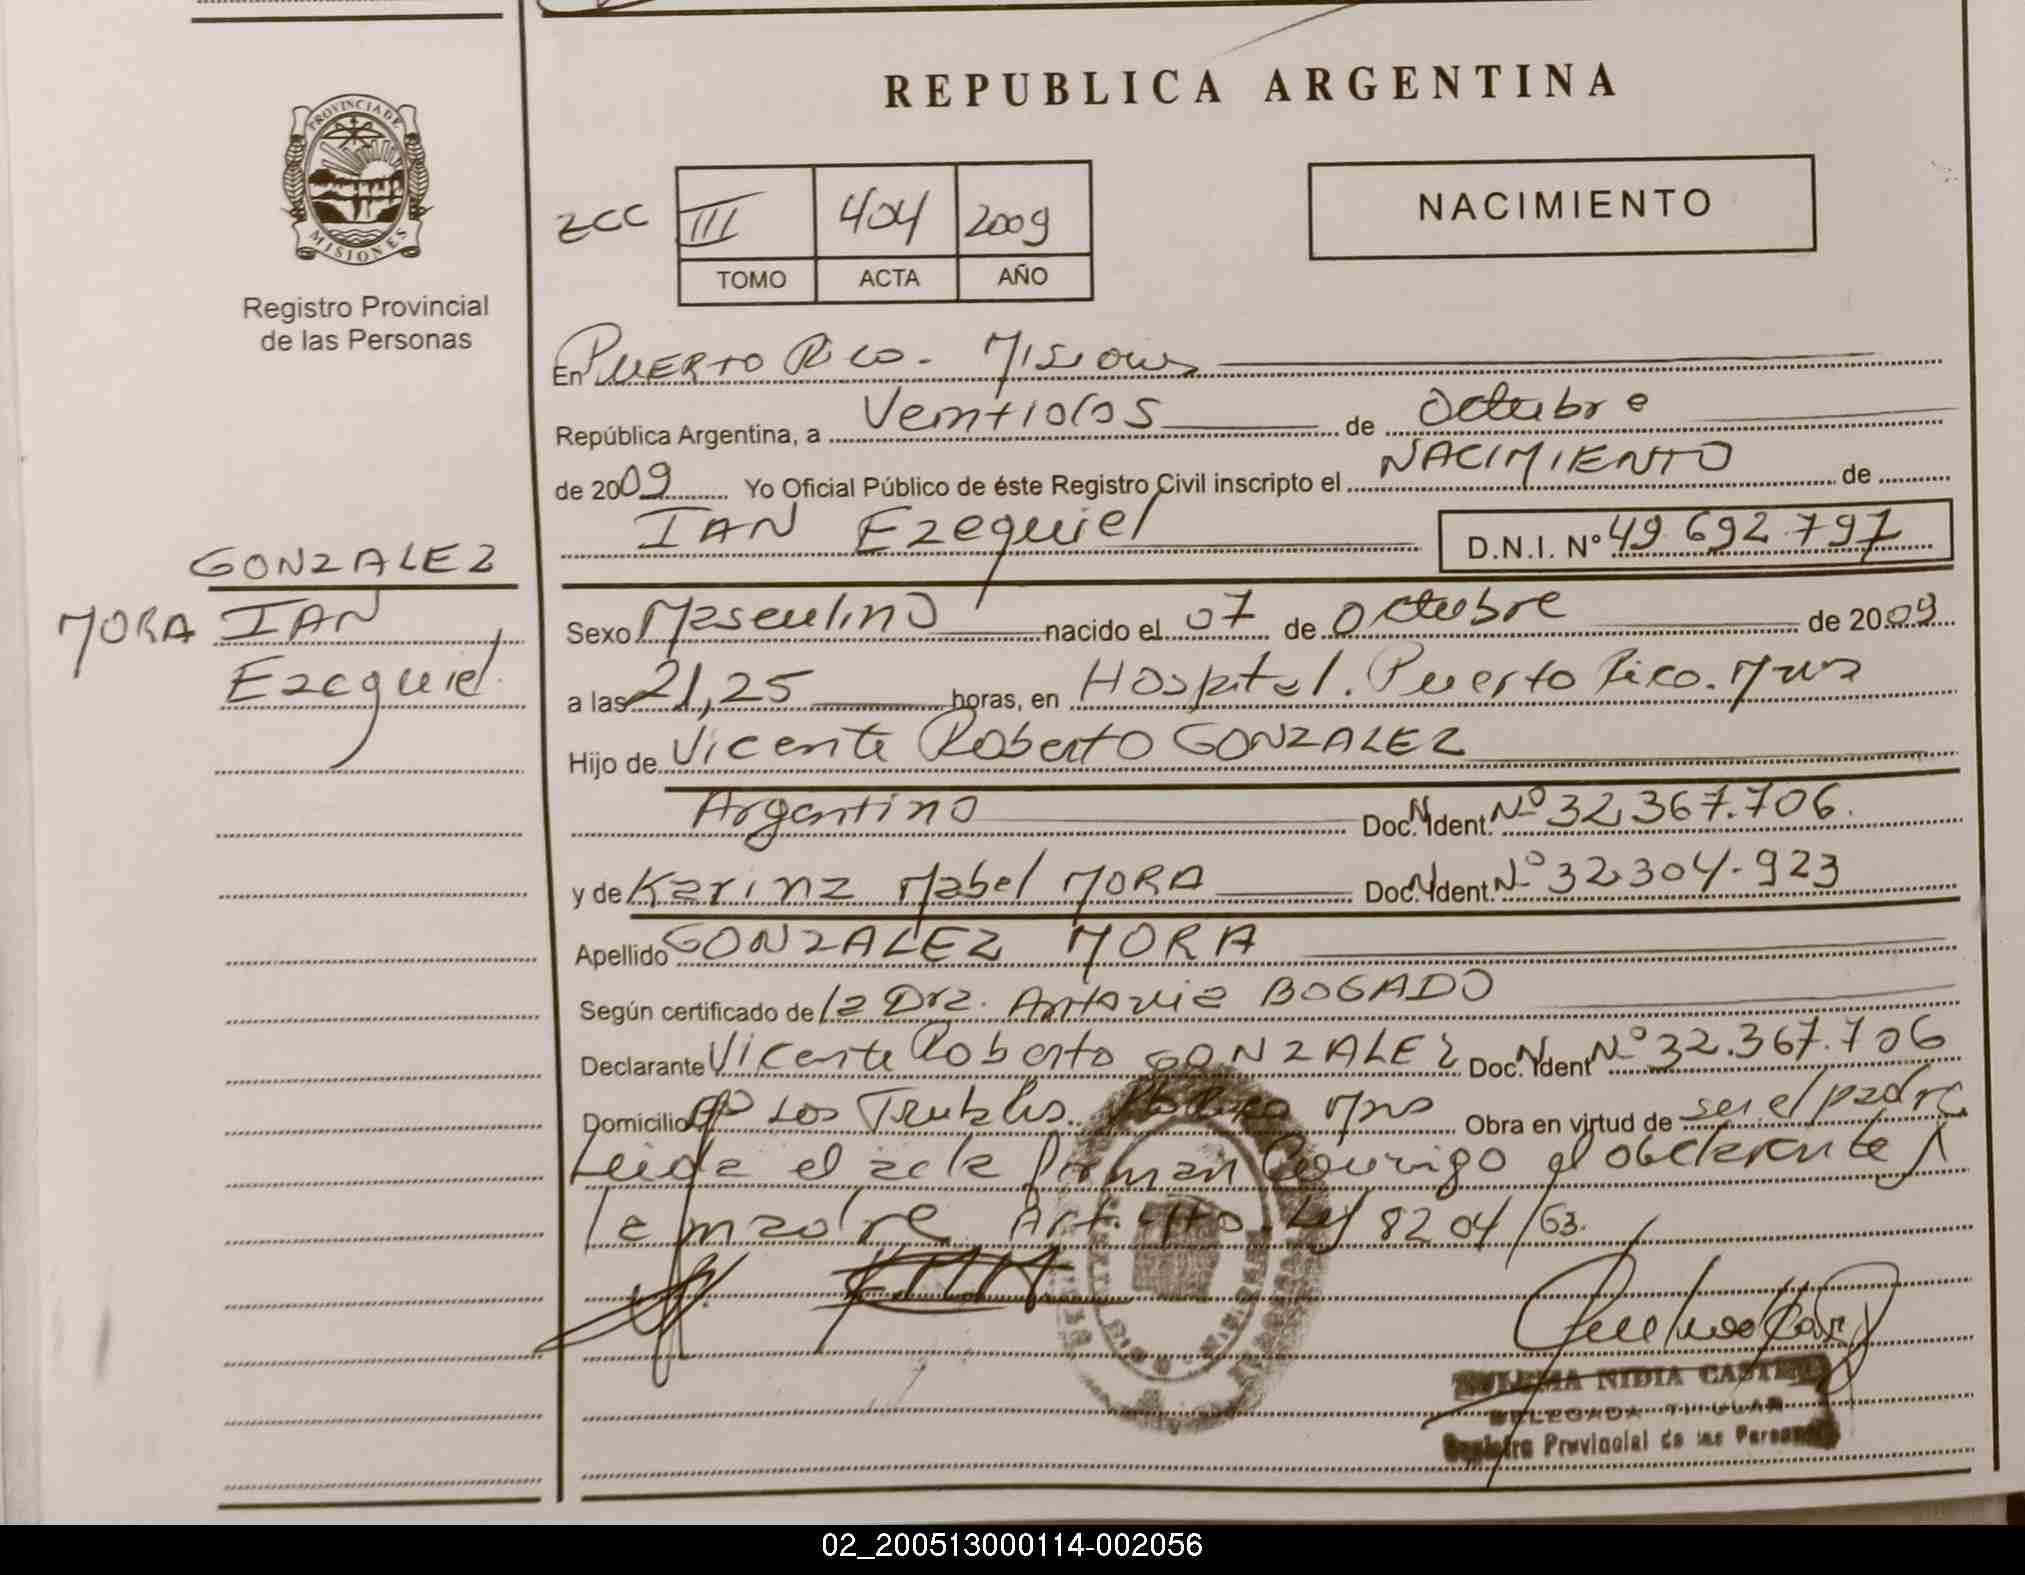 REPUBLICA ARGENTINA
PROVINCIA DE MISIONES
Registro Provincial
de las Personas
NACIMIENTO
ZCC III 404 2009
TOMO ACTA AÑO
En PUERTO Rico - Misiones
República Argentina, a Veintidos de Octubre
de 2009 Yo Oficial Público de éste Registro Civil inscripto el NACIMIENTO de
IAN Ezequiel D.N.I. Nº 49.692.797
GONZALEZ
MORA IAN
Ezequiel
Sexo Masculino nacido el 07 de Octubre de 2009
a las 21,25 horas, en Hospital. Puerto Rico. Mnes
Hijo de Vicente Roberto GONZALEZ
Argentino Doc. N. Ident. Nº 32.367.706.
y de Karina Mabel MORA Doc. N. Ident. Nº 32.304.923
Apellido GONZALEZ MORA
Según certificado de la Dra. Antonia BOGADO
Declarante Vicente Roberto GONZALEZ Doc. N. Ident Nº 32.367.706
Domicilio Bº Los Mnes Obra en virtud de ser el padre
Leida el acta firman conmigo el declarante y
la madre Art. Ley 8204/63.
NIDIA
DELEGADA TITULAR
Registro Provincial de las Personas
02_200513000114-002056